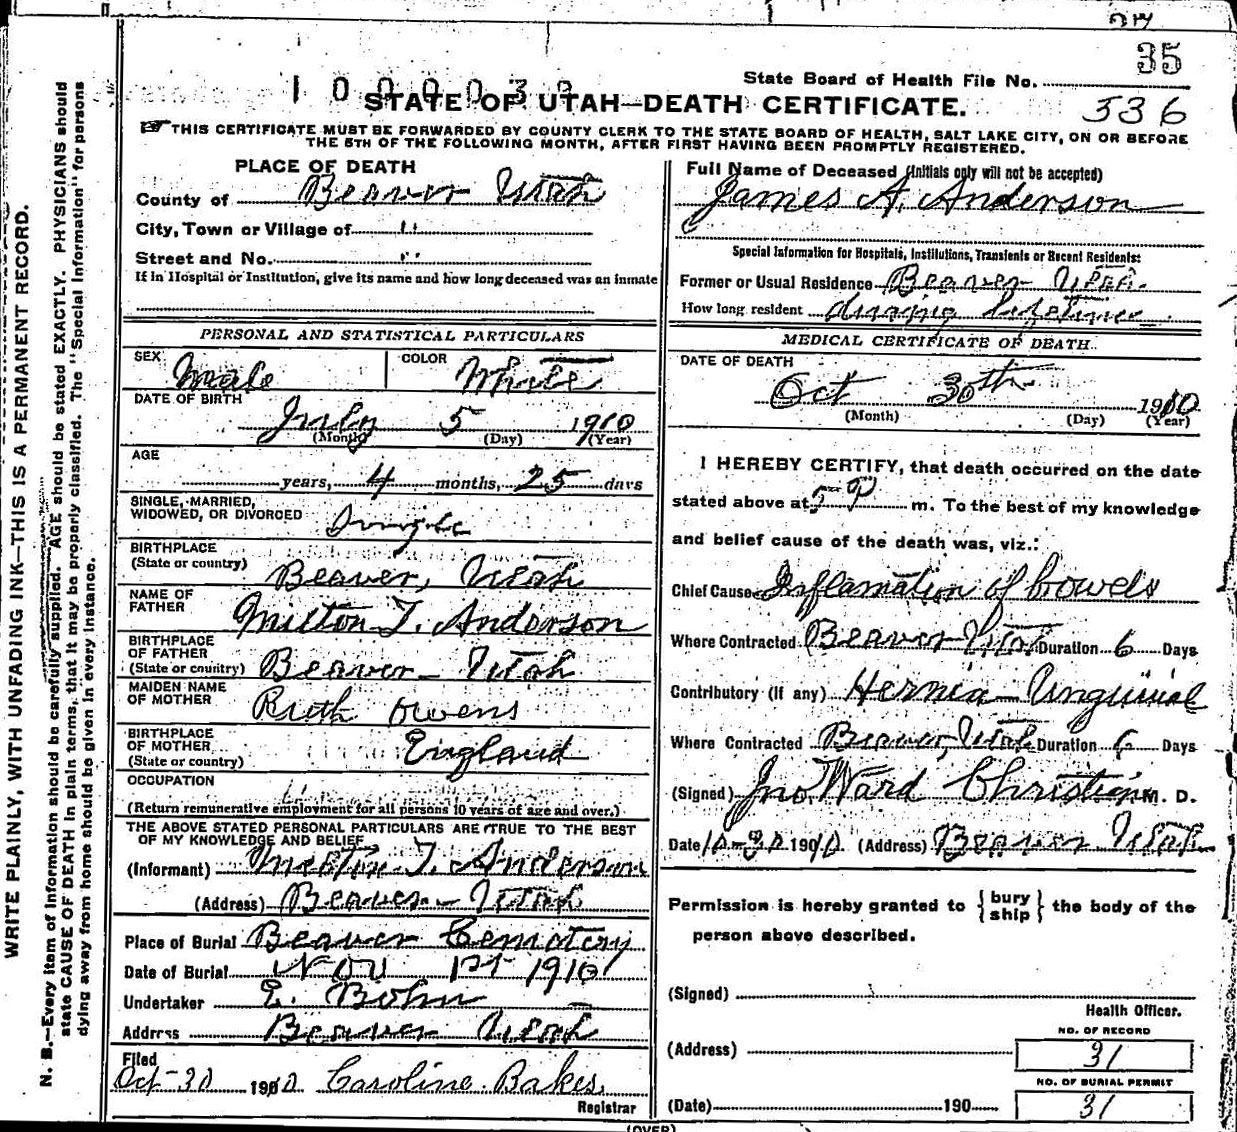 35
State Board of Health File No.
1000030
STATE OF UTAH—DEATH CERTIFICATE.
536
THIS CERTIFICATE MUST BE FORWARDED BY COUNTY CLERK TO THE STATE BOARD OF HEALTH, SALT LAKE CITY, ON OR BEFORE
THE 5TH OF THE FOLLOWING MONTH, AFTER FIRST HAVING BEEN PROMPTLY REGISTERED.
WRITE PLAINLY, WITH UNFADING INK—THIS IS A PERMANENT RECORD.
N. B.—Every item of information should be carefully supplied. AGE should be stated EXACTLY. PHYSICIANS should
state CAUSE OF DEATH in plain terms, that it may be properly classified. The "Special Information" for persons
dying away from home should be given in every instance.
PLACE OF DEATH
County of Beaver Utah
City, Town or Village of "
Street and No. "
If in Hospital or Institution, give its name and how long deceased was an inmate
PERSONAL AND STATISTICAL PARTICULARS
SEX Male COLOR White
DATE OF BIRTH
July 5 1910
(Month) (Day) (Year)
AGE
years, 4 months, 25 days
SINGLE, MARRIED,
WIDOWED, OR DIVORCED Single
BIRTHPLACE
(State or country) Beaver, Utah
NAME OF
FATHER Milton T. Anderson
BIRTHPLACE
OF FATHER
(State or country) Beaver Utah
MAIDEN NAME
OF MOTHER Ruth Owens
BIRTHPLACE
OF MOTHER
(State or country) England
OCCUPATION
(Return remunerative employment for all persons 10 years of age and over.)
THE ABOVE STATED PERSONAL PARTICULARS ARE TRUE TO THE BEST
OF MY KNOWLEDGE AND BELIEF
(Informant) Milton T. Anderson
(Address) Beaver Utah
Place of Burial Beaver Cemetery
Date of Burial Nov 1st 1910
Undertaker E. Bohn
Address Beaver Utah
Filed
Oct-30 1910 Caroline Bakes
Registrar
Full Name of Deceased (Initials only will not be accepted)
James A. Anderson
Special Information for Hospitals, Institutions, Transients or Recent Residents:
Former or Usual Residence Beaver Utah.
How long resident during lifetime
MEDICAL CERTIFICATE OF DEATH.
DATE OF DEATH
Oct 30th 1910
(Month) (Day) (Year)
I HEREBY CERTIFY, that death occurred on the date
stated above at 5 P m. To the best of my knowledge
and belief cause of the death was, viz.:
Chief Cause Inflamation of bowels
Where Contracted Beaver Utah Duration 6 Days
Contributory (if any) Hernia Unguinal
Where Contracted Beaver, Utah Duration 6 Days
(Signed) Jno Ward Christian M. D.
Date 10-30 1910. (Address) Beaver Utah
Permission is hereby granted to { bury ship } the body of the
person above described.
(Signed)
Health Officer.
NO. OF RECORD
(Address) 31
NO. OF BURIAL PERMIT
(Date) 190 31
(OVER)